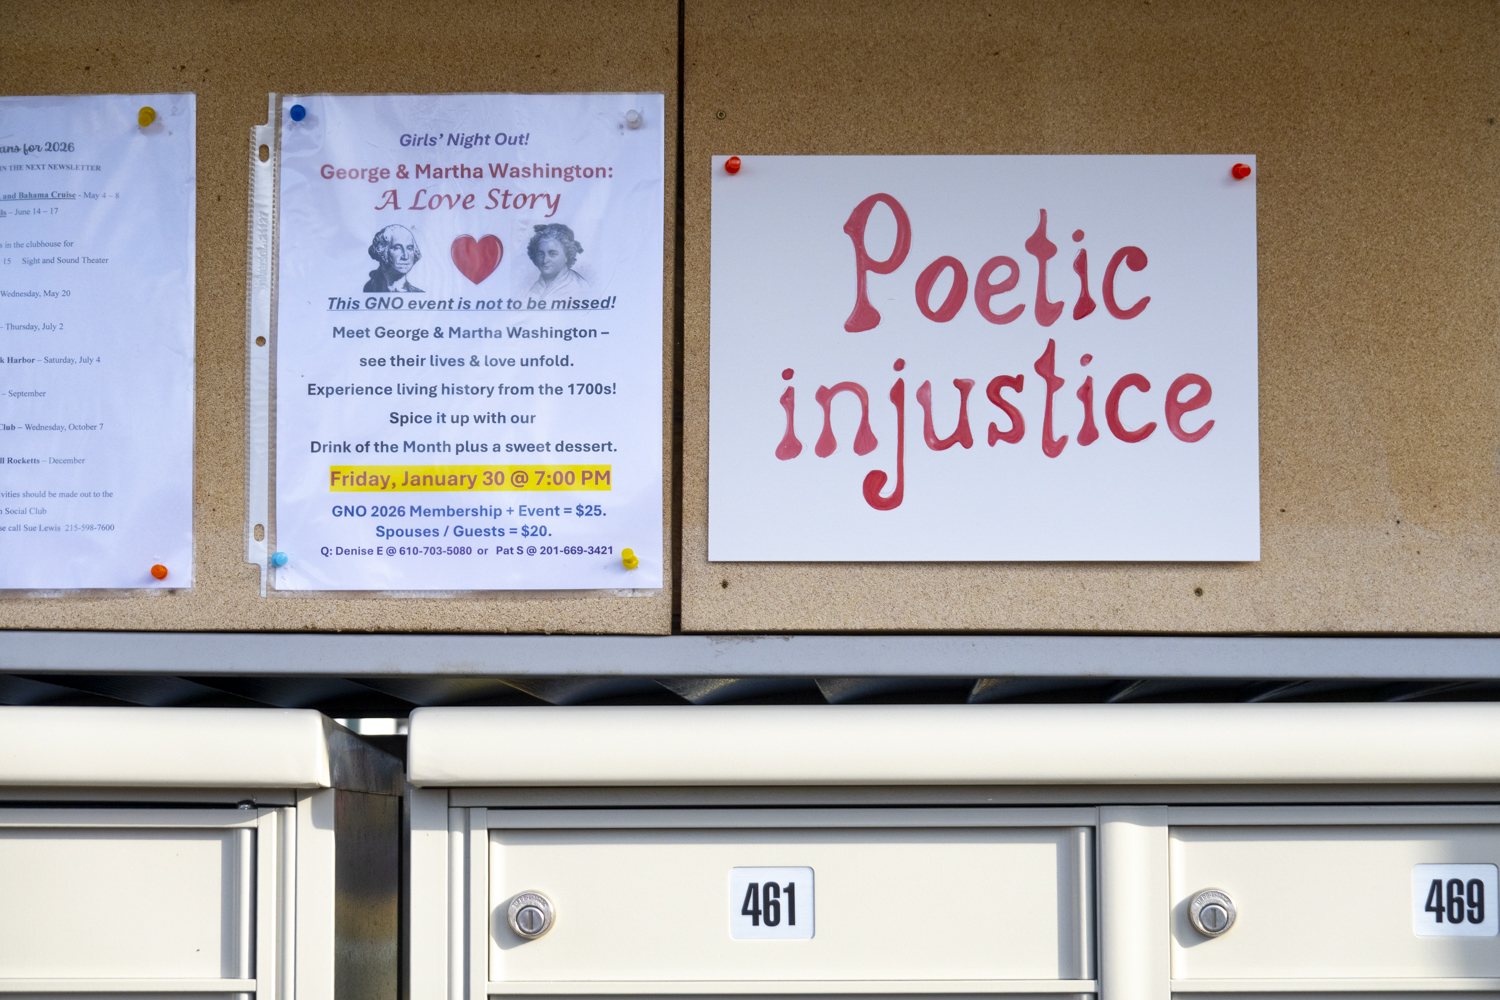 ans for 2026
IN THE NEXT NEWSLETTER
and Bahama Cruise - May 4 – 8
– June 14 – 17
s in the clubhouse for
15 Sight and Sound Theater
Wednesday, May 20
– Thursday, July 2
k Harbor – Saturday, July 4
– September
Club – Wednesday, October 7
ll Rocketts – December
vities should be made out to the
Social Club
se call Sue Lewis 215-598-7600
Girls' Night Out!
George & Martha Washington:
A Love Story
This GNO event is not to be missed!
Meet George & Martha Washington –
see their lives & love unfold.
Experience living history from the 1700s!
Spice it up with our
Drink of the Month plus a sweet dessert.
Friday, January 30 @ 7:00 PM
GNO 2026 Membership + Event = $25.
Spouses / Guests = $20.
Q: Denise E @ 610-703-5080 or Pat S @ 201-669-3421
Poetic
injustice
461
469